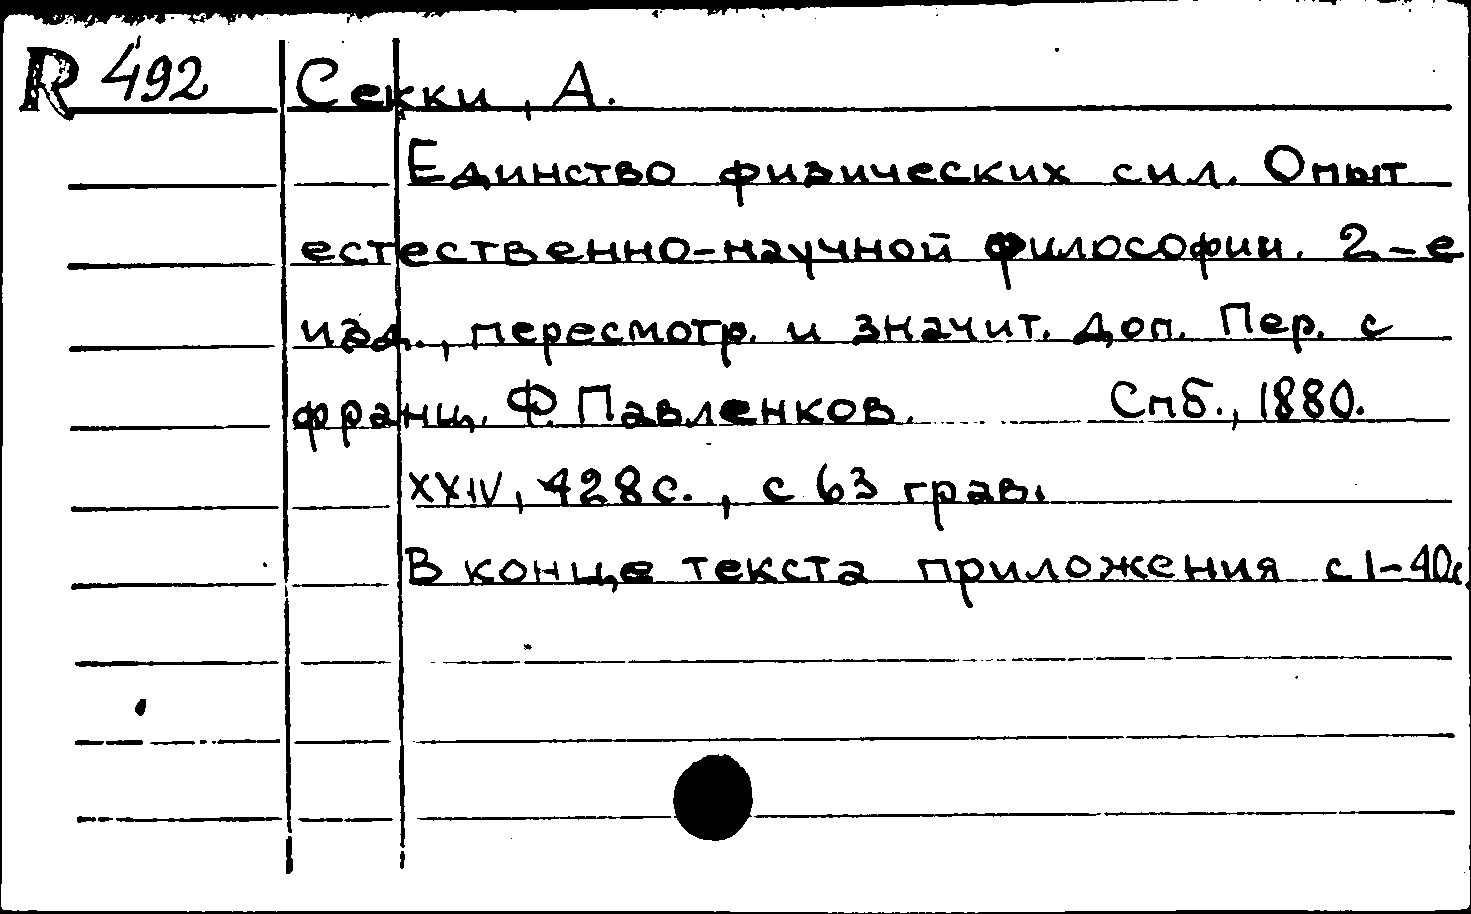 R 492 Секки, А.
Единство физических сил. Опыт
естественно-научной философии. 2-е
изд., пересмотр. и значит. доп. Пер. с
франц. Ф. Павленков. Спб., 1880.
XXIV, 428 с., с 63 грав.
В конце текста приложения с 1-40с.